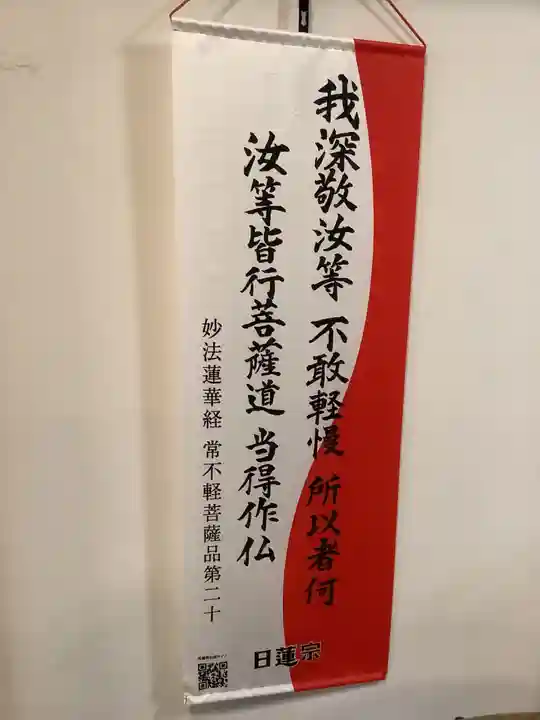 我深敬汝等 不敢軽慢 所以者何
汝等皆行菩薩道 当得作仏
妙法蓮華経 常不軽菩薩品第二十
日蓮宗